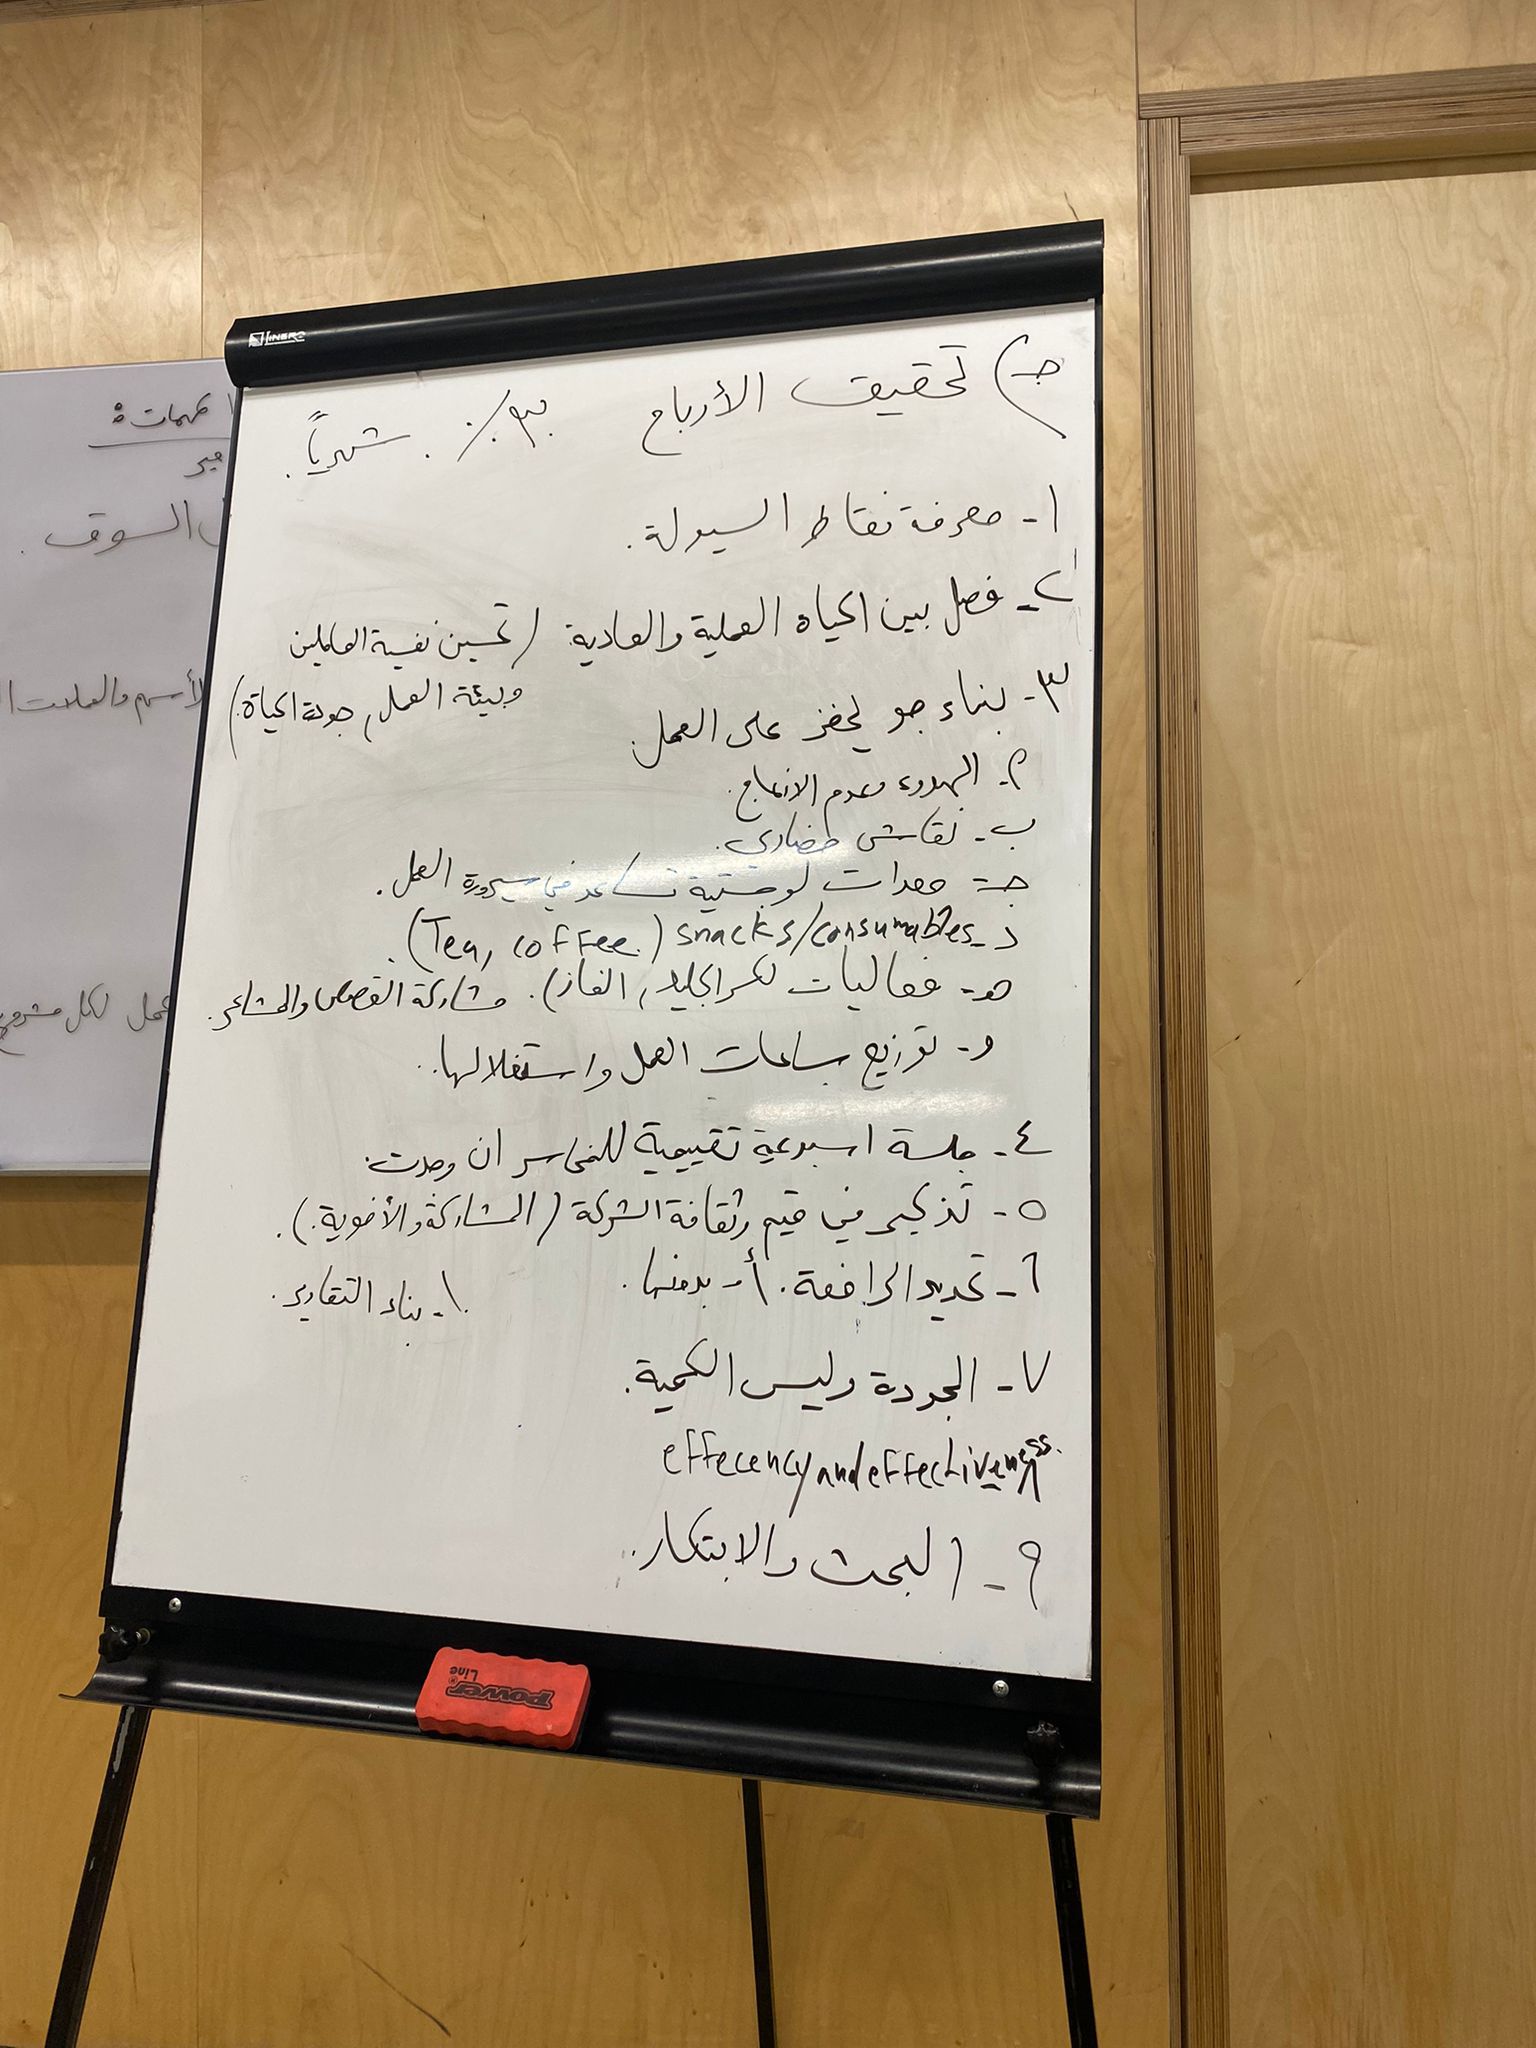 LINERO
جـ) تحقيق الأرباح بـ ٣٠٪ شهرياً.
١- معرفة نقاط السيولة.
٢- فصل بين الحياة العملية والعادية (تحسين نفسية العاملين
وبيئة العمل, جودة الحياة.)
٣- بناء جو يحفز على العمل.
أ- الهدوء وعدم الازعاج.
ب- نقاش حضاري.
جـ- معدات لوجستية تساعد في سيرورة العمل.
د- snacks/consumables (Tea, coffee.).
هـ- فعاليات لكسر الجليد, الغاز). مشاركة القصص والمشاعر.
و- توزيع ساعات العمل واستغلالها..
٤- جلسة اسبوعية تقييمية للخسائر ان وجدت.
٥- تذكير في قيم وثقافة الشركة (المشاركة والأخوية.).
٦- تحديد الرافعة. أ- بدونها.
١٠- بناء التقارير.
٧- الجودة وليس الكمية.
effecency and effectiveness.
٩- البحث والابتكار.
Power Line
المهمات:
السوق.
الأسهم والعملات
عمل لكل مشروع